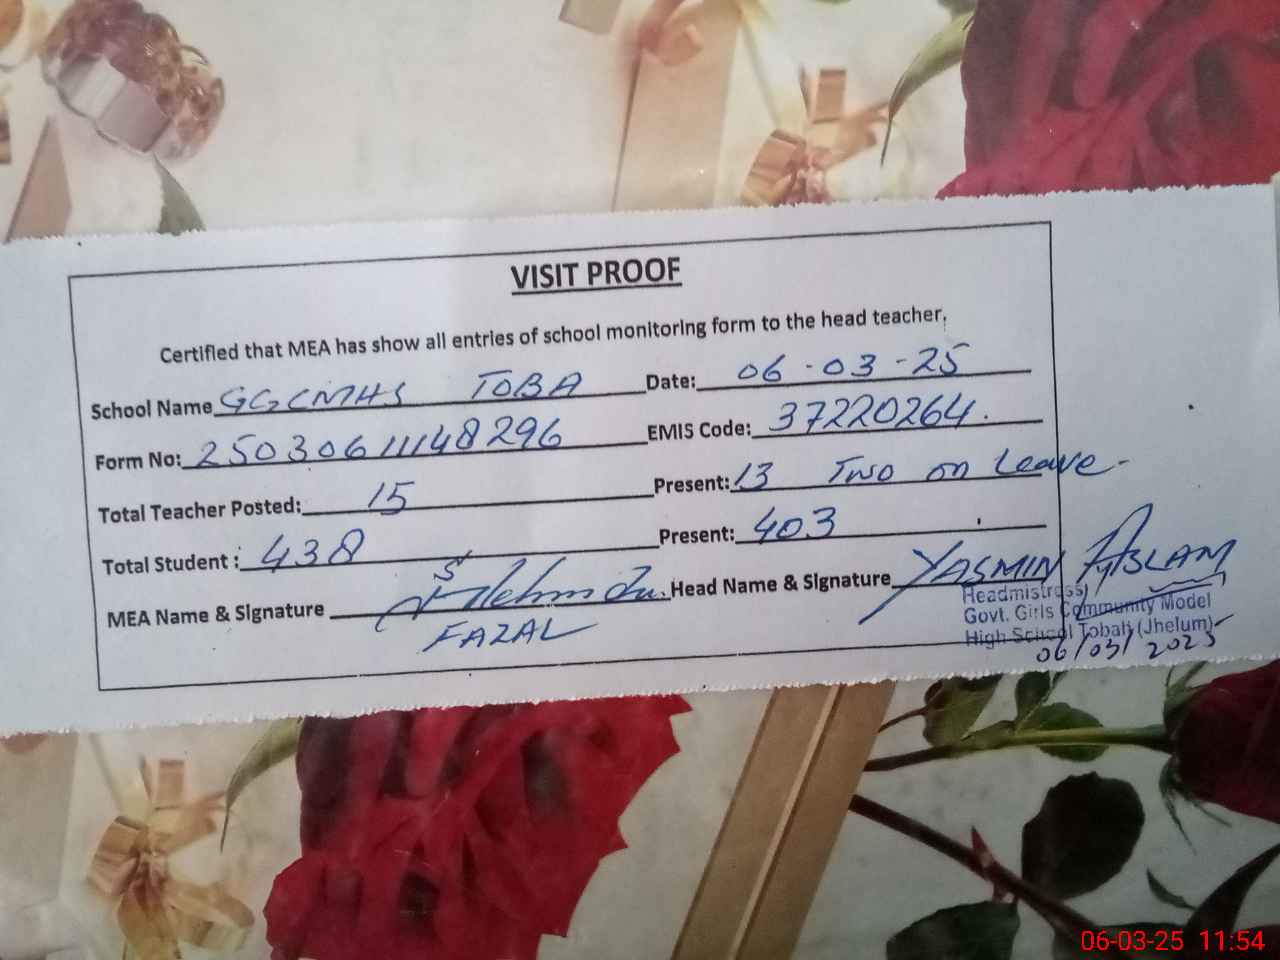 VISIT PROOF
Certified that MEA has show all entries of school monitoring form to the head teacher.
School Name GGCMHS TOBA Date: 06-03-25
Form No: 25030611148296 EMIS Code: 37220264.
Total Teacher Posted: 15 Present: 13 Two on Leave-
Total Student : 438 Present: 403
MEA Name & Signature Head Name & Signature YASMIN ASLAM
FAZAL
Headmistress
Govt. Girls Community Model
High School Tobah (Jhelum)
06/03/2025
06-03-25 11:54